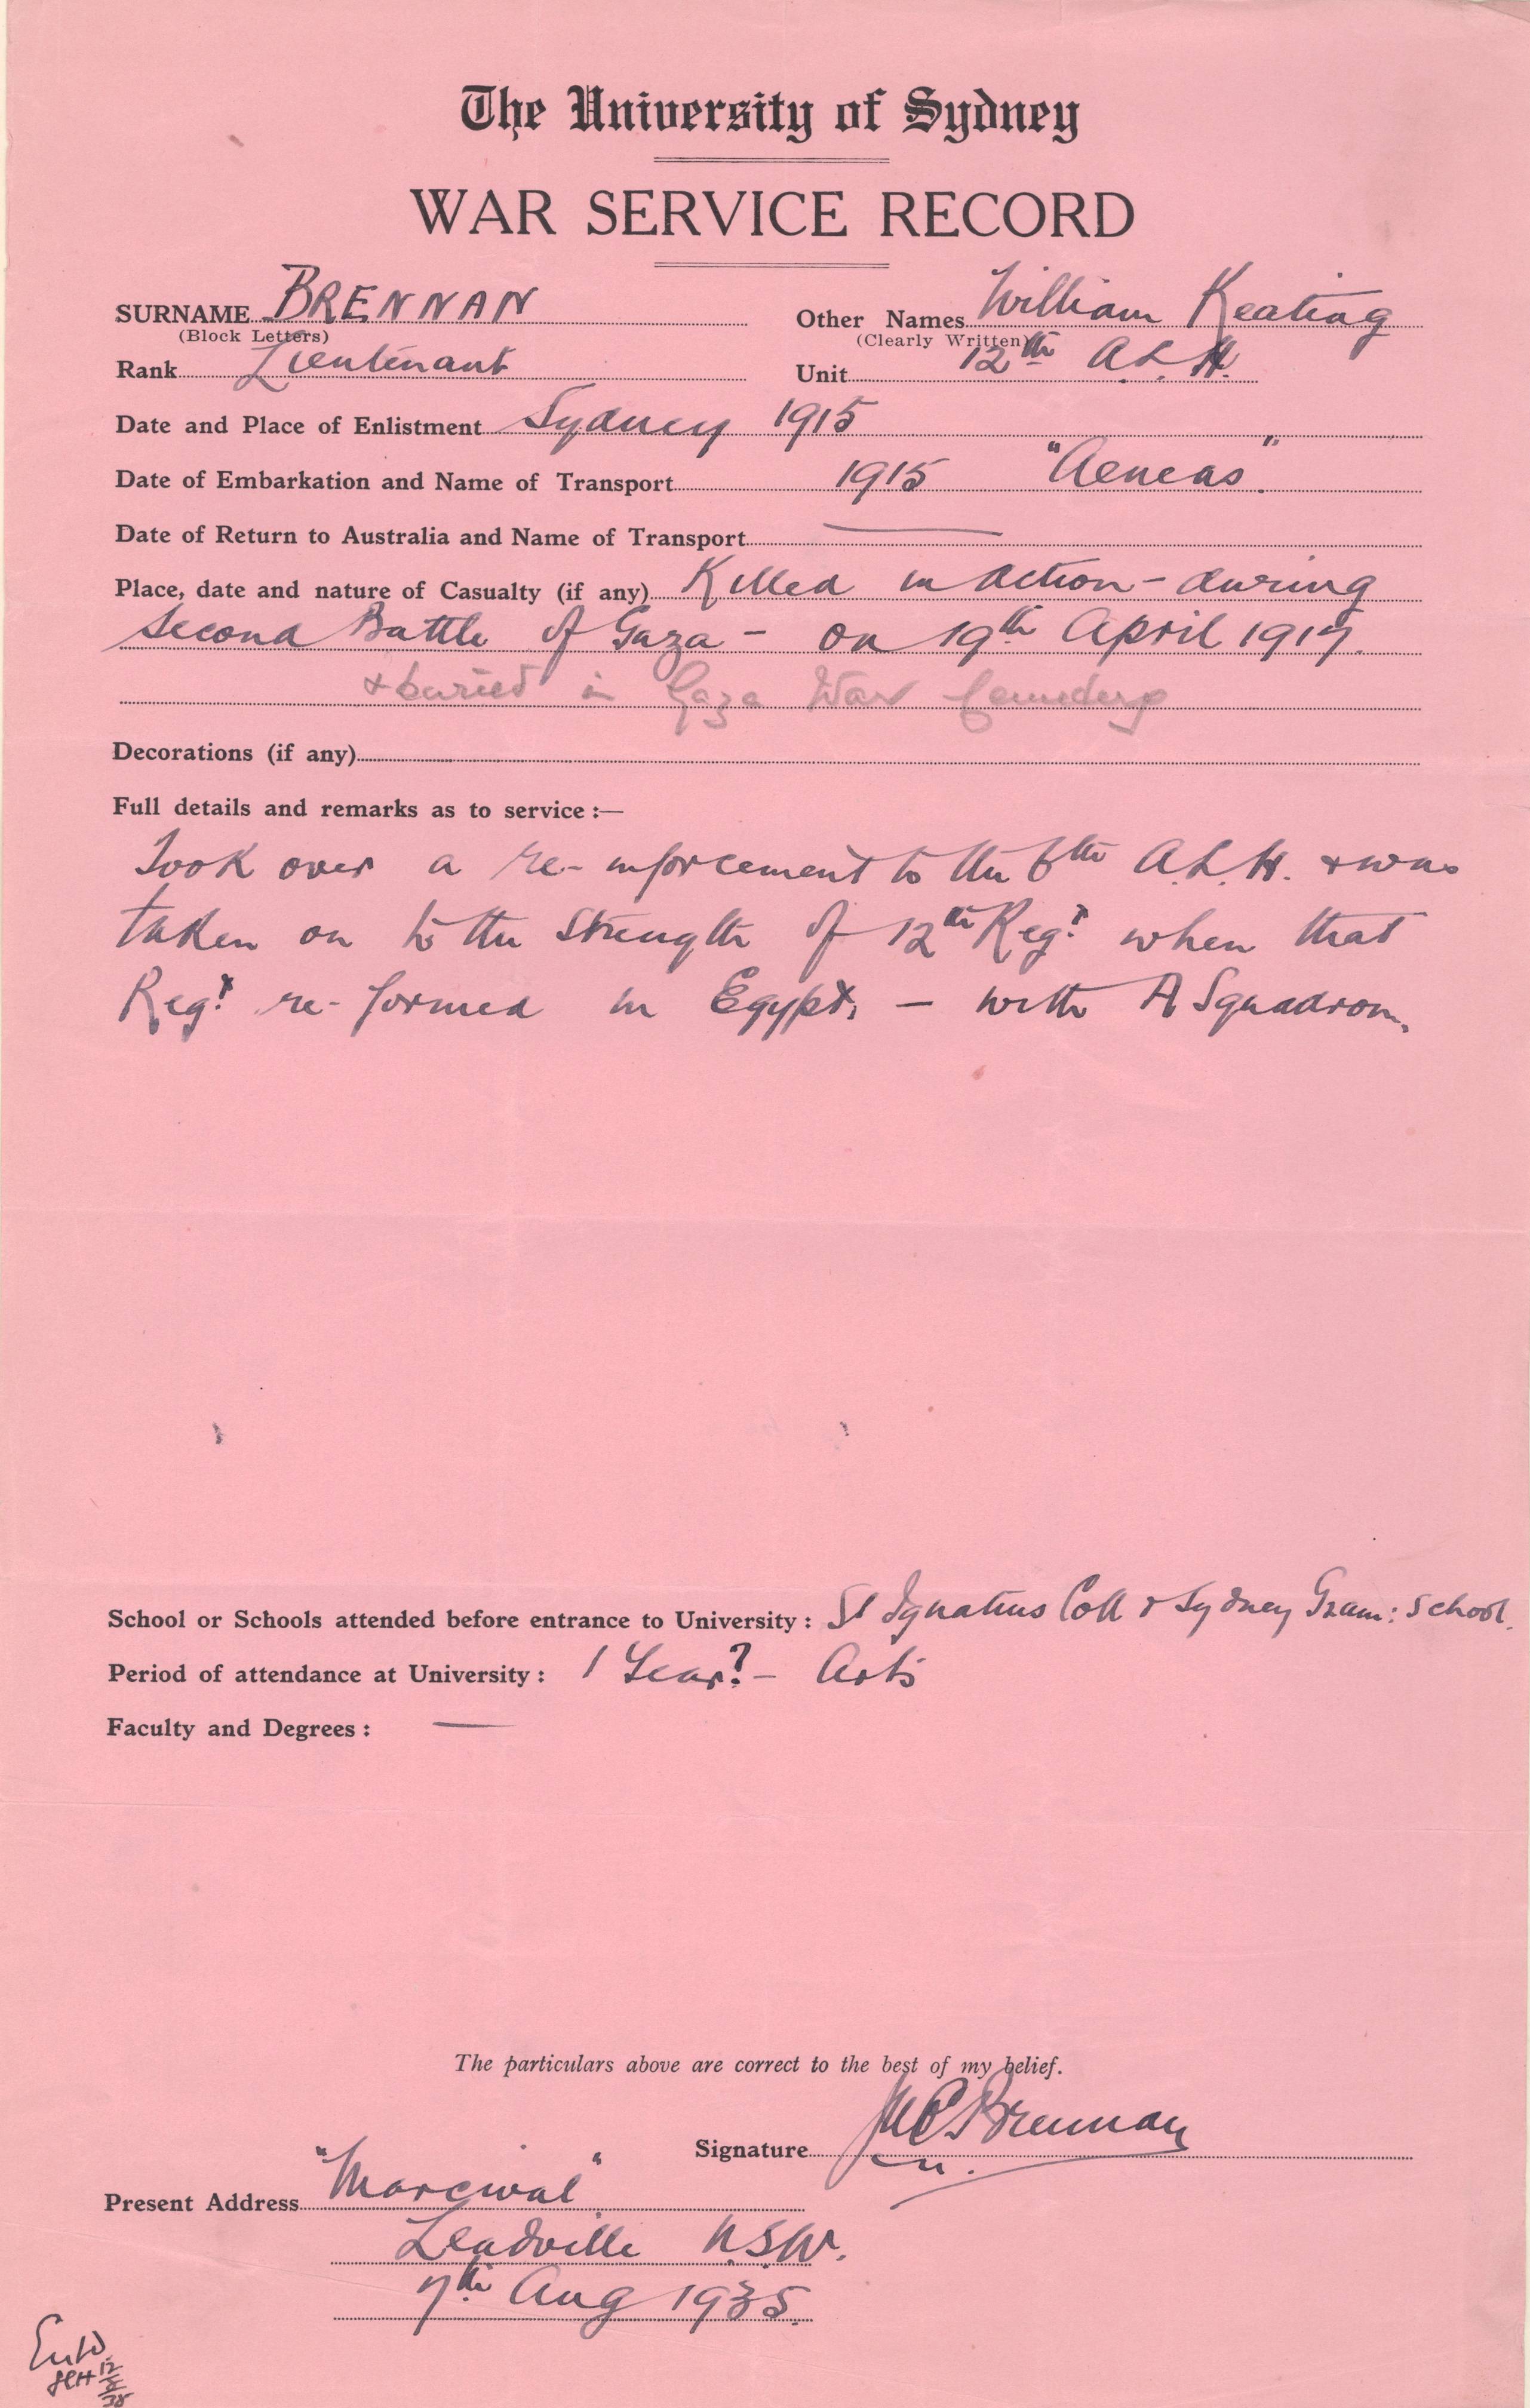 The University of Sydney
WAR SERVICE RECORD
SURNAME BRENNAN Other Names William Keating
(Block Letters) (Clearly Written)
Rank Lieutenant Unit 12th A.L.H.
Date and Place of Enlistment Sydney 1915
Date of Embarkation and Name of Transport 1915 "Aeneas".
Date of Return to Australia and Name of Transport —
Place, date and nature of Casualty (if any) Killed in action - during
Second Battle of Gaza - on 19th April 1917.
& buried in Gaza War Cemetery
Decorations (if any)
Full details and remarks as to service :—
Took over a re-inforcement to the 6th A.L.H. & was
taken on to the strength of 12th Regt when that
Regt re-formed in Egypt, - with A Squadron.
School or Schools attended before entrance to University : St Ignatius Coll & Sydney Gram: School.
Period of attendance at University : 1 Year? - Arts
Faculty and Degrees : —
The particulars above are correct to the best of my belief.
Signature Brennan
Present Address
Leadville N.S.W.
7th Aug 1935.